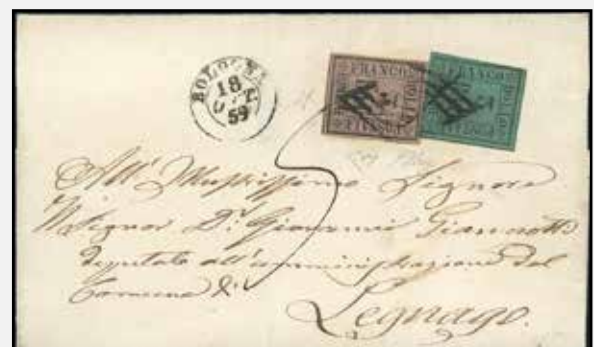 BOLOGNA
18
OTT
59
FRANCO
FRANCO
BOLLO
All' Illustrissimo Signore
Il Signor Dr. Giovanni Giannotti
deputato all'amministrazione del
Comune di
Legnago.